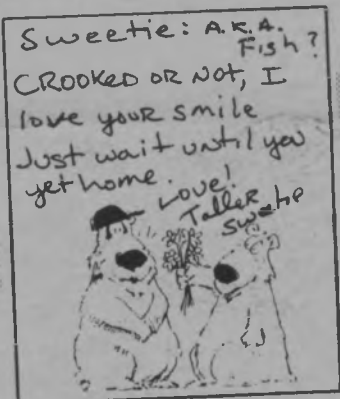 Sweetie: A.K.A.
Fish?
CROOKED OR NOT, I
love your smile
Just wait until you
get home.
Love!
Taller
Sweetie